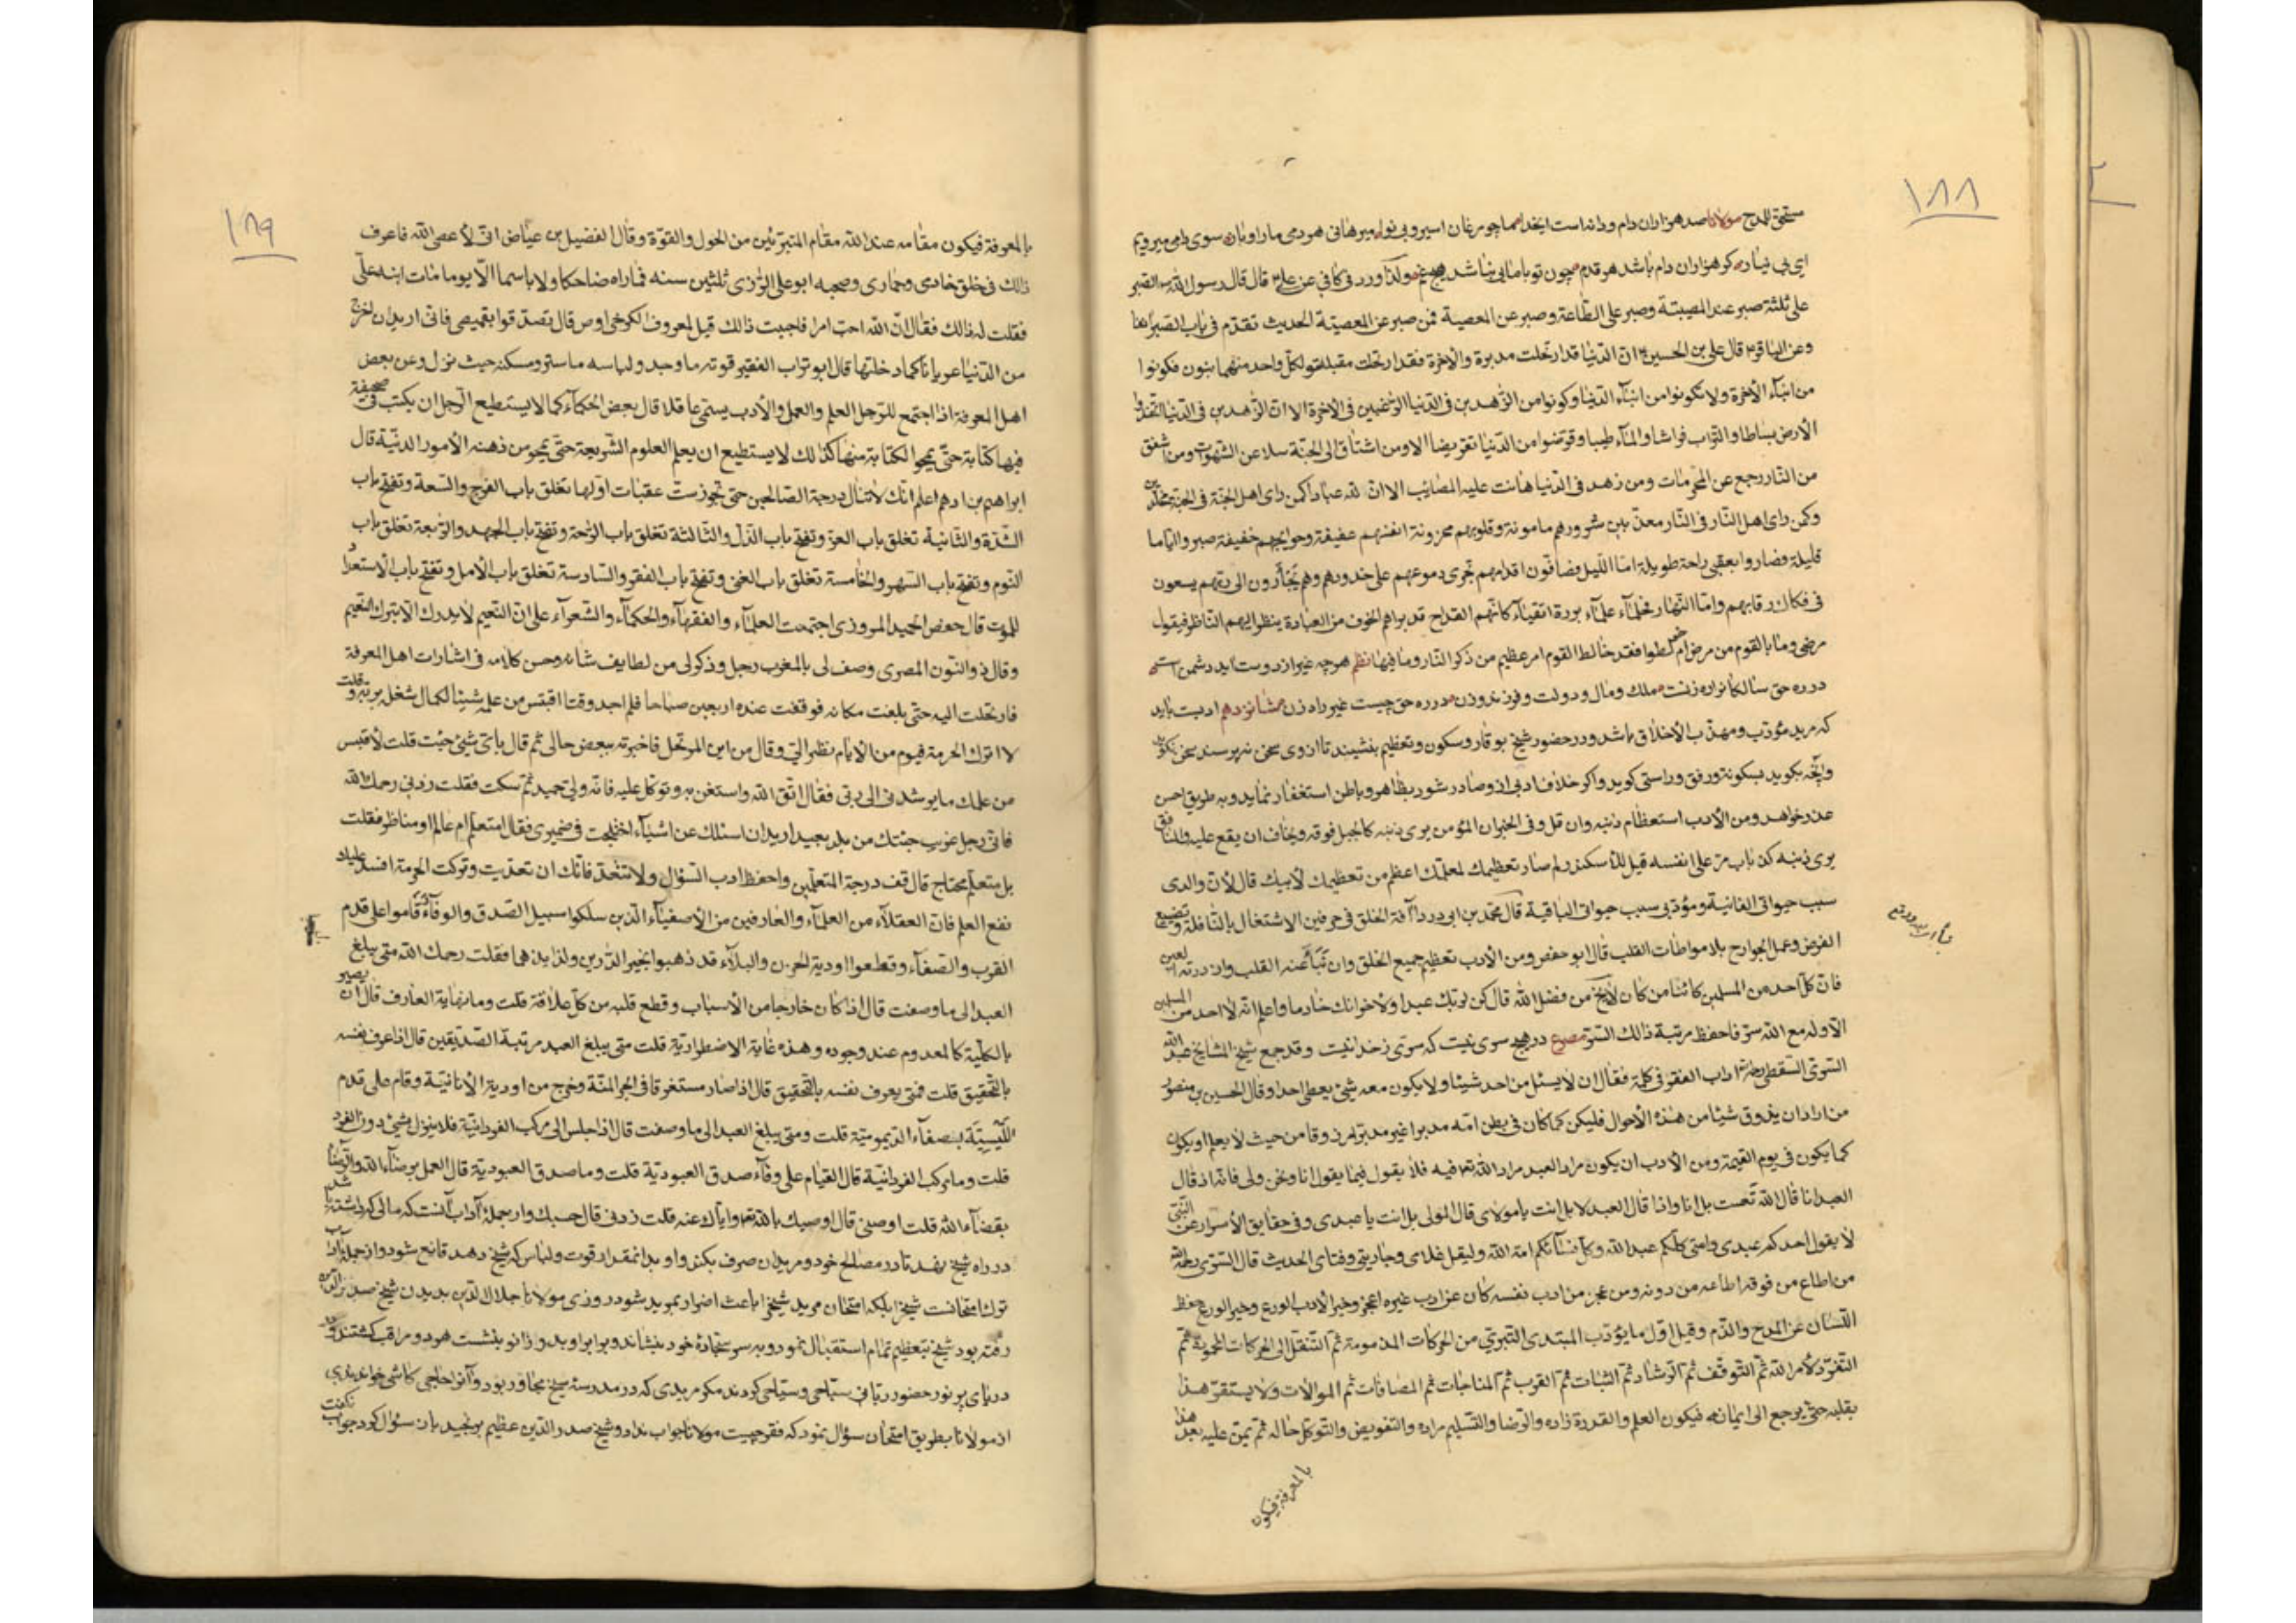 ١٨٨
مستحق المدح مولانا صد هزاران دام و دانه است ایخدا ما چو مرغان اسیر و بی نوا میرهانی هر دمی ما را و باز سوی دامی میرویم
ای بی نیاز کر هزاران دام باشد هر قدم چون تو با مایی نباشد هیچ غم ولذا ورد فی کافی عن علی قال قال رسول الله الصبر
علی ثلثة صبر عند المصیبة وصبر علی الطاعة وصبر عن المعصیة فمن صبر عن المعصیة الحدیث تقدم فی باب الصبر
وعن الباقر قال علی بن الحسین ان الدنیا قد ارتحلت مدبرة والاخرة قد ارتحلت مقبلة ولکل واحد منهما بنون فکونوا
من ابناء الأخرة ولا تکونوا من ابناء الدنیا وکونوا من الزاهدین فی الدنیا الراغبین فی الاخرة الا ان الزاهدین فی الدنیا اتخذوا
الأرض بساطا والتراب فراشا والماء طیبا وقرضوا من الدنیا تقریضا الا ومن اشتاق الی الجنة سلا عن الشهوات ومن اشفق
من النار رجع عن المحرمات ومن زهد فی الدنیا هانت علیه المصائب الا ان لله عبادا کمن رای اهل الجنة فی الجنة مخلدین
وکمن رای اهل النار فی النار معذبین شرورهم مامونة وقلوبهم محزونة انفسهم عفیفة وحوایجهم خفیفة صبروا ایاما
قلیلة فصاروا بعقبی راحة طویلة اما اللیل فصافون اقدامهم تجری دموعهم علی خدودهم وهم یجأرون الی ربهم یسعون
فی فکاک رقابهم واما النهار فحلماء علماء بررة اتقیاء کانهم القداح قد براهم الخوف من العبادة ینظر الیهم الناظر فیقول
مرضی وما بالقوم من مرض ام خولطوا فقد خالط القوم امر عظیم من ذکر النار وما فیها نظم هرچه غیر از دوست اید دشمن است
در ره حق سالکانرا ره زنست ملک ومال ودولت وفرزند وزن در ره حق چیست غیر راه زن شانزدهم ادبست باید
که مرید مؤدب ومهذب الأخلاق باشد ودر حضور شیخ بوقار وسکون وتعظیم بنشیند تا از وی سخن نپرسند سخن نکوید
وآنچه بکوید بسکونة ورفق وراستی کوید واکر خلاف ادبی از و صادر شود بظاهر وباطن استغفار نماید وبه طریق احسن
عذر خواهد ومن الأدب استعظام ذنبه وان قل وفی الخبر ان المؤمن یری ذنبه کالجبل فوقه ویخاف ان یقع علیه والمنافق
یری ذنبه کذباب مر علی انفسه قیل للاسکندر لم صار تعظیمک لمعلمک اعظم من تعظیمک لأبیک قال لأن والدی
سبب حیواتی الفانیة ومؤدبی سبب حیواتی الباقیة قال محمد بن ابی درداء آفة الخلق فی حرفین الاشتغال بالنافلة وتضییع
الفرض وعمل الجوارح بلا مواطات القلب قال ابو حفص ومن الأدب تعظیم جمیع الخلق وان
فان کل احد من المسلمین کائنا من کان لا یخ من فضل الله قال کن لربک عبدا ولأخوانک خادما واعلم انه لا احد من المسلمین
الا وله مع الله سر فاحفظ مرتبة ذالک السر مصرع در هیچ سری نیست که سری ز خدا نیست وقد جمع شیخ المشایخ عبد الله
السری السقطی اداب الفقر فی کلمة فقال ان لا یسئل من احد شیئا ولا یکون معه شیئ یعطی احدا وقال الحسین بن منصور
من اراد ان یذوق شیئا من هذه الأحوال فلیکن کما کان فی بطن امه مدبرا غیر مدبر مرزوقا من حیث لا یعلم او یکون
کما یکون فی یوم القیمة ومن الأدب ان یکون مراد العبد مراد الله فیه فلا یقول فیما یقول انا ونحن ولی فانه اذ قال
العبد انا قال الله تعست بل انا واذا قال العبد لا بل انت یا مولای قال المولی بل انت یا عبدی وفی حقایق الأسرار عن النبی
لا یقول احدکم عبدی وامتی کلکم عبد الله وکل نسائکم امة الله ولیقل غلامی وجاریتی وفتای الحدیث قال السری رحمه الله
من اطاع من فوقه اطاعه من دونه ومن عجز من ادب نفسه کان عن ادب غیره اعجز وخیر الأدب الورع وخیر الورع حفظ
اللسان عن المدح والذم وقیل اول ما یؤدب المبتدی التبری من الحرکات المذمومة ثم التنقل الی الحرکات المحمودة ثم
التفرد لأمر الله ثم التوقف ثم الرشاد ثم الثبات ثم القرب ثم المناجات ثم المصافات ثم الموالات ولا یستقر هذا
بقلبه حتی یرجع الی ایمانه فیکون العلم والقدرة زاده والرضا والتسلیم مراده والتفویض والتوکل حاله ثم یمن علیه بعد هذا
بالمعرفة فیکون
١٨٩
بالمعرفة فیکون مقامه عند الله مقام المتبرئین من الحول والقوة وقال الفضیل بن عیاض انی لأعصی الله فاعرف
ذالک فی خلق خادمی وحماری وصحبه ابو علی الرازی ثلثین سنه فما راه ضاحکا ولا باسما الا یوما مات ابنه علی
فقلت له ذالک فقال ان الله احب امرا فاحببت ذالک قیل لمعروف الکرخی اوص قال تصدقوا بقمیصی فانی ارید ان اخرج
من الدنیا عریانا کما دخلتها قال ابو تراب الفقیر قوته ما وجد ولباسه ما ستر ومسکنه حیث نزل وعن بعض
اهل المعرفة اذا اجتمع للرجل العلم والعمل والأدب یسمی عاقلا قال بعض الحکماء کما لا یستطیع الرجل ان یکتب فی صحیفة
فیها کتابة حتی یمحو الکتابة منها کذالک لا یستطیع ان یعلم العلوم الشریعة حتی یمحو من ذهنه الأمور الدنیة قال
ابراهیم بن ادهم اعلم انک لا تنال درجة الصالحین حتی تجوز ست عقبات اولها تغلق باب الفرج والسعة وتفتح باب
الشدة والثانیة تغلق باب العز وتفتح باب الذل والثالثة تغلق باب الراحة وتفتح باب الجهد والرابعة تغلق باب
النوم وتفتح باب السهر والخامسة تغلق باب الغنی وتفتح باب الفقر والسادسة تغلق باب الأمل وتفتح باب الاستعداد
للموت قال حفص الحمید المروزی اجتمعت العلماء والفقهاء والحکماء والشعراء علی ان النعیم لا یدرک الا بترک النعیم
وقال ذو النون المصری وصف لی بالمغرب رجل وذکر لی من لطایف شانه وحسن کلامه فی اشارات اهل المعرفة
فارتحلت الیه حتی بلغت مکانه فوقفت عنده اربعین صباحا فلم اجد وقتا اقتبس من علمه شیئا لکمال شغله بربه وقلت
لا اترک الحرمة فیوم من الأیام نظر الی وقال من این المرتحل فاخبرته ببعض حالی ثم قال بأی شیئ جئت قلت لأقتبس
من علمک ما یرشدنی الی ربی فقال اتق الله واستغن به وتوکل علیه فانه ولی حمید ثم سکت فقلت زدنی رحمک الله
فانی رجل غریب جئتک من بلد بعید ارید ان اسئلک عن اشیاء اختلجت فی ضمیری فقال امتعلم ام عالم او مناظر فقلت
بل متعلم محتاج قال قف درجة المتعلمین واحفظ ادب السؤال ولا تتعد فانک ان تعدیت وترکت الحرمة افسد علیک
نفع العلم فان العقلاء من العلماء والعارفین من الأصفیاء الذین سلکوا سبیل الصدق والوفاء قاموا علی قدم
القرب والصفاء وقطعوا اودیة الحزن والبلاء قد ذهبوا بخیر الدارین ولذایذهما فقلت رحمک الله متی یبلغ
العبد الی ما وصفت قال اذا کان خارجا من الأسباب وقطع قلبه من کل علاقة قلت وما نهایة العارف قال ان یصیر
بالکلیة کالمعدوم عند وجوده وهذه غایة الاضطراریة قلت متی یبلغ العبد مرتبة الصدیقین قال اذا عرف نفسه
بالتحقیق قلت فمتی یعرف نفسه بالتحقیق قال اذا صار مستغرقا فی بحر المنة وخرج من اودیة الأنانیة وقام علی قدم
اللیسیة بصفاء الدیمومیة قلت ومتی یبلغ العبد الی ما وصفت قال اذا جلس الی مرکب الفردانیة فلا ینزل بشیئ دون الفرد
قلت وما مرکب الفردانیة قال القیام علی وفاء صدق العبودیة قلت وما صدق العبودیة قال العمل برضاء الله والرضا
بقضاء الله قلت اوصنی قال اوصیک بالله وایاک عنه قلت زدنی قال حسبک واز جمله آداب آنست که مالی که داشته باشد
در راه شیخ بنهد تا در مصالح خود ومریدان صرف بکند واو بدانمقدار قوت ولباس که شیخ دهد قانع شود واز جمله آداب
ترک امتحانست شیخرا بلکه امتحان مرید شیخرا باعث اضرار بمرید شود روزی مولانا جلال الدین بدیدن شیخ صدر الدین
رفته بود شیخ بتعظیم تمام استقبال نمود وبه سر سجادة خود بنشاند وبرابر او بدو زانو بنشست هر دو مراقب کشتند و
دریای پر نور حضور ربانی سباحی وسیاحی کردند مکر مریدی که در مدرسة شیخ مجاور بود وآنرا حاجی کاشی خواندندی
از مولانا بطریق امتحان سؤال نمود که فقر چیست مولانا جواب نداد وشیخ صدر الدین عظیم برنجید باز سؤال کرد جواب نکفت